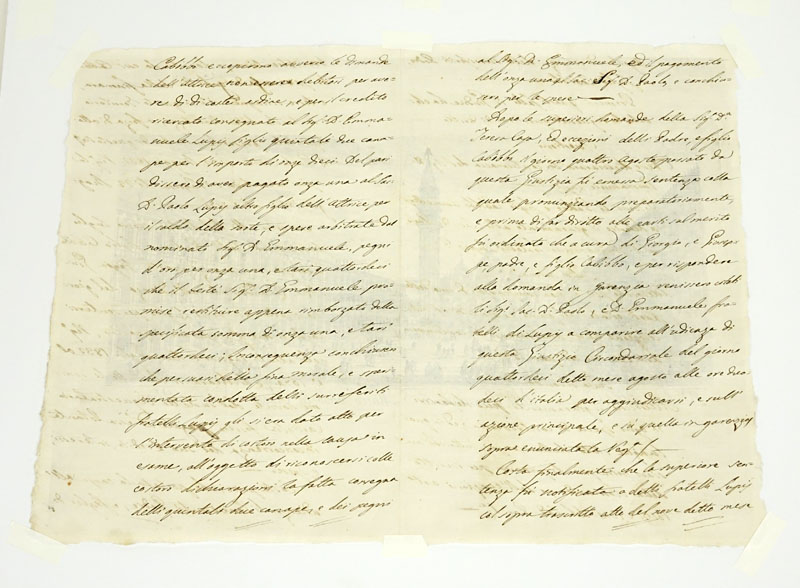 Calabbi eccepirono avverso le dimande
dell'attrice non essersi debitori per ave-
re di di costei ordine, e per il credito
ricercato consegnato al Sig. D. Emma-
nuele Lupij figlio quintale due cana-
pe per l'importo di onze dieci. Del pari
dissero di aver pagato onza una al Sac.
D. Paolo Lupij altro figlio dell'attrice per
il saldo della nota, e spese arbitrate dal
nominato Sig. D. Emmanuele, pegni
d'oro, per onza una, e tarì quattordeci
che il detto Sig. D. Emmanuele pro-
mise restituire appena rimborzato della
pecificata somma di onza una, e tarì
quattordeci; In conseguenza conchiusero
che per
fratelli Lupij gli si era dato atto per
l'Intervento di costoro nella causa in
esame, all'oggetto di riconoscersi colle
costoro dichiarazioni la fatta consegna
delli quintali due canape, e dei pegni
al Sig. D. Emmanuele, ed il pagamento
dell'onza una al Sac. Sig. D. Paolo, e conchiu-
sero per le spese
Dopo le superiori domande della Sig. D.a
Teresa Capo, ed eccezioni delli Padre e figlio
Calabbi il giorno quattro Agosto passato da
questa Giustizia fù emessa sentenza colla
quale pronunziando preparatoriamente,
e prima di far diritto alle parti sul merito
fù ordinato che a cura di Giorgio, e Giusep-
pe padre, e figlio Calabbi, e per rispondere
alla domanda in garenzia venissero citati
li Sig. Sac. D. Paolo, e D. Emmanuele fra-
telli di Lupij a comparire all'udienza di
questa Giustizia Circondariale del giorno
quattordeci detto mese agosto alle ore dieci
d'italia per aggiudicarsi, e sull'
azione principale, e su quella in garenzia
sopra enunciata
Costa finalmente che la superiore sen-
tenza fù notificata a detti fratelli Lupij
col sopra trascritto atto del nove detto mese